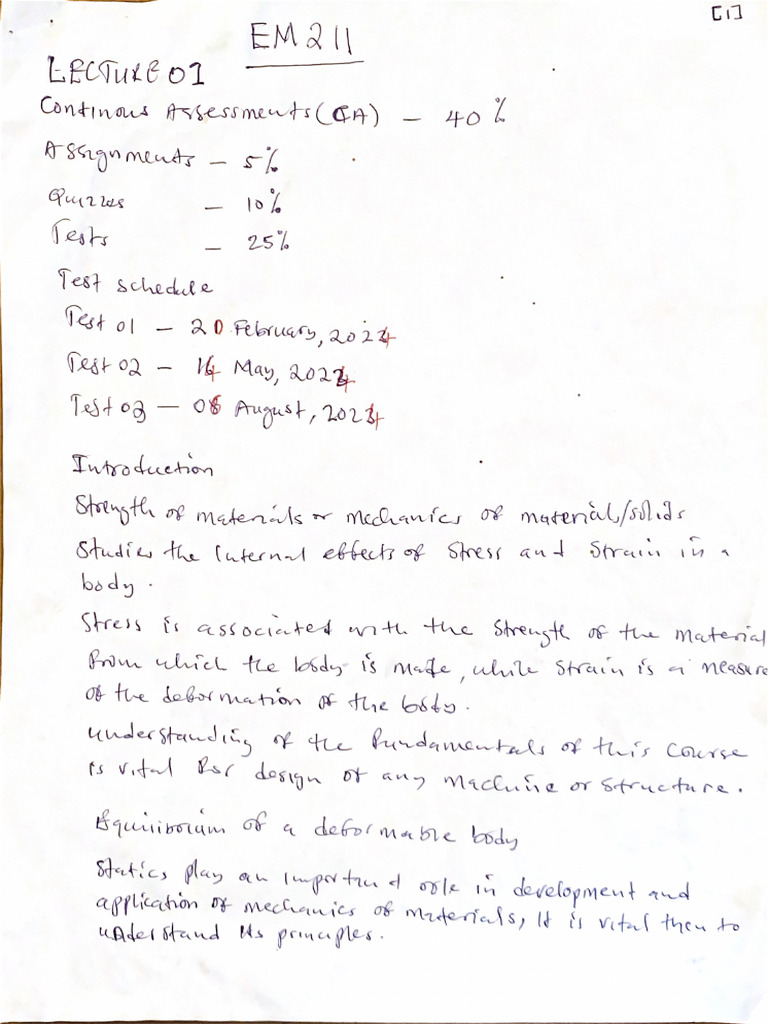 [1]
EM 211
LECTURE 01
Continous Assessments (CA) – 40%
Assignments – 5%
Quizzes – 10%
Tests – 25%
Test schedule
Test 01 – 20 February, 2024
Test 02 – 14 May, 2024
Test 03 – 06 August, 2024
Introduction
Strength of materials or mechanics of material/solids
Studies the internal effects of stress and strain in a
body.
Stress is associated with the strength of the material
from which the body is made, while strain is a measure
of the deformation of the body.
Understanding of the fundamentals of this course
is vital for design of any machine or structure.
Equilibrium of a deformable body
Statics play an important role in development and
application of mechanics of materials, It is vital then to
understand its principles.